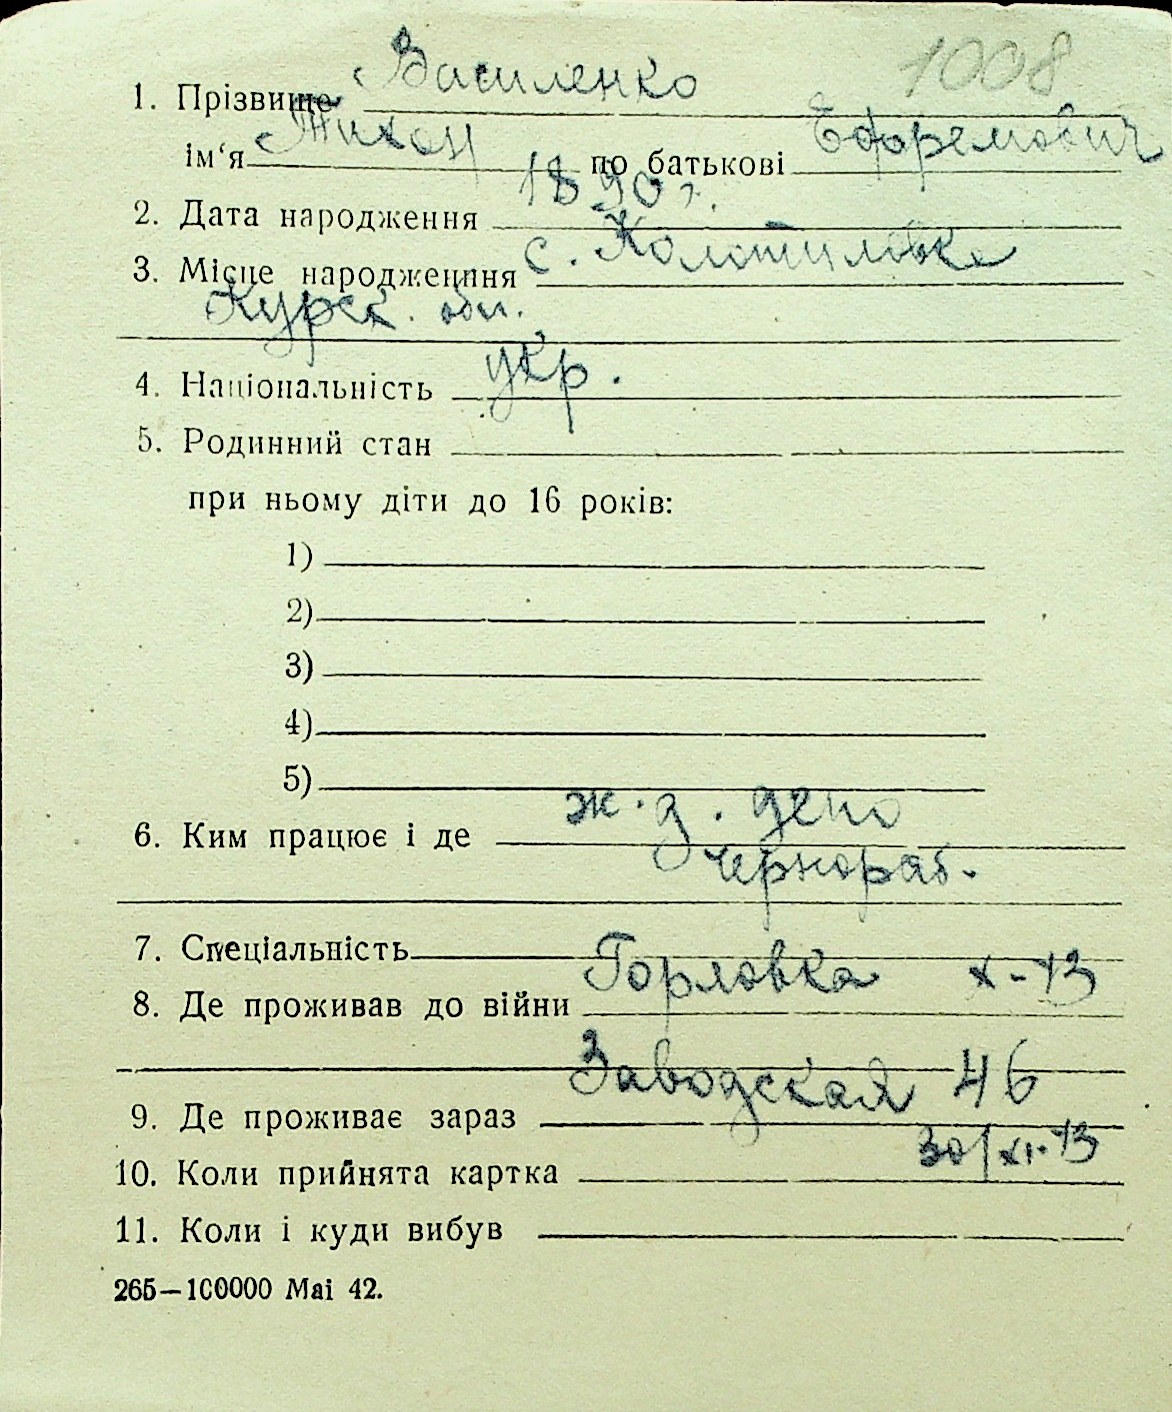 1008
1. Прізвище Василенко
ім‘я Тихон по батькові Ефремович
2. Дата народження 1890 г.
3. Місце народження с. Колотиловке
Курск. обл.
4. Національність укр.
5. Родинний стан
при ньому діти до 16 років:
1)
2)
3)
4)
5)
6. Ким працює і де ж.д. депо
чернораб.
7. Спеціальність
8. Де проживав до війни Горловка X-43
9. Де проживає зараз Заводская 46
10. Коли прийнята картка 30/XI-43
11. Коли і куди вибув
265—100000 Mai 42.